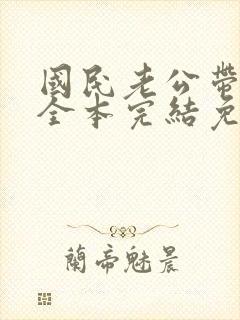 國民老公帶
全本完結免
蘭帝魅晨